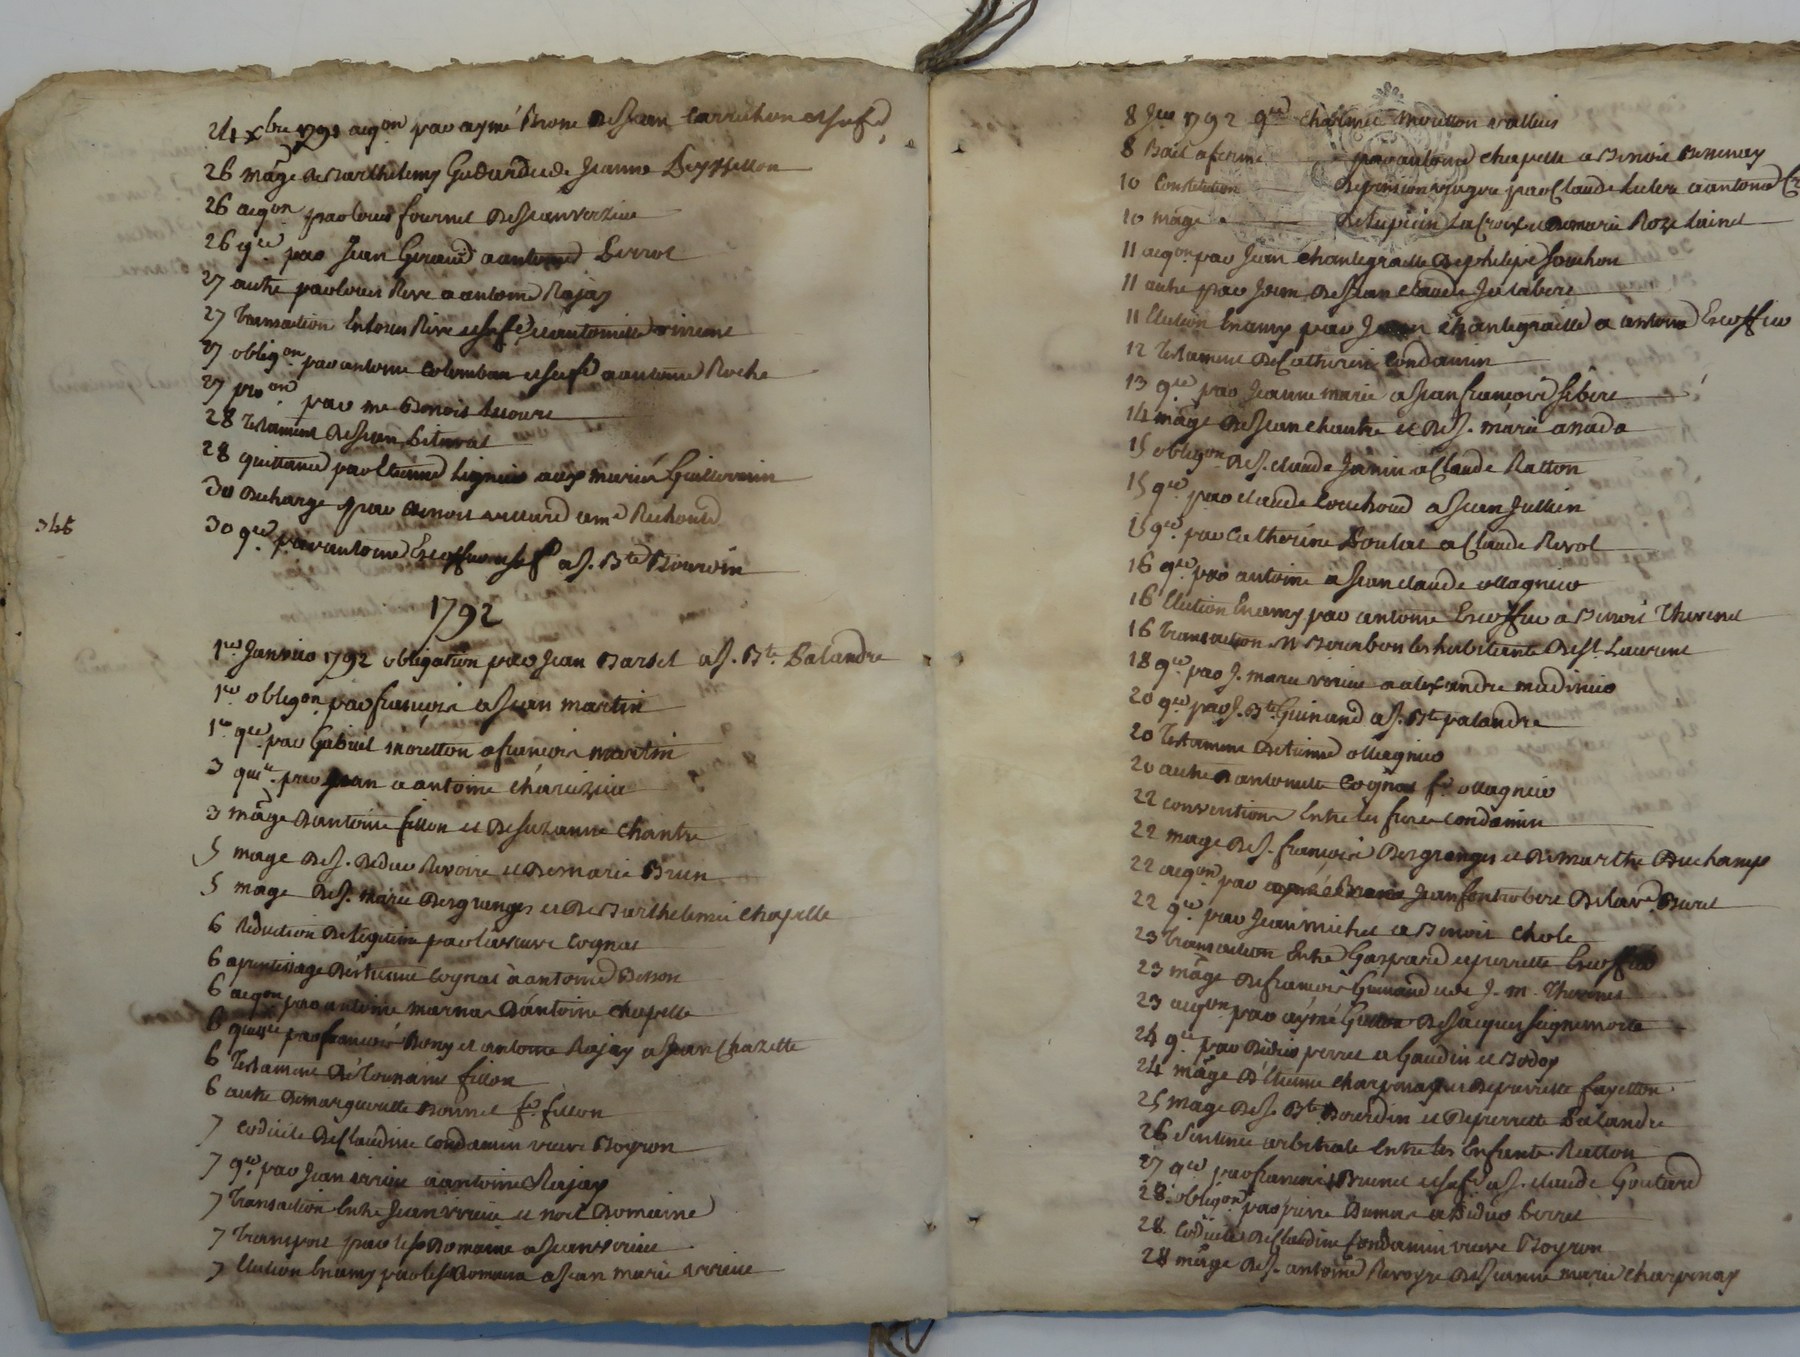 24 xbre 1791 aqon par aymé Brone de Jean Carrichon et sa fe
26 mage de Barthelemy et de Jeanne Peyssellon
26 aqon par louis fournel de Jean verzieu
26 qce par Jean Giraud a antoine Perrot
27 autre par louis Rive a antoine Rajay
27 transaction Ente louis Rive et sa fe et antoinette virieux
27 obligon par antoine Colomban et sa fe a antoine Roche
27 pron par me Benoit
28 testament de Jean
28 quittance par Etienne aux mariés Guillermin
30 decharge par Benoit a me Richoud
346
30 qce par antoine Escoffier et sa fe a J. Bte Bourdin
1792
1er Janvier 1792 obligation par Jean Barsel a J. Bte Palandre
1er obligon par françois a Jean martin
1er qce par Gabriel moretton a françois martin
3 qce par Jean a antoine
3 mage d'antoine fillon et de Suzanne Chantre
5 mage de J. Revoire et de marie Brun
5 mage de J. marie Desgranges et de Barthelemie Chapelle
6 reduction de legitime par la veuve Cognat
6 aprentissage d'étienne Cognat à antoine Besson
6 aqon par antoine marnas d'antoine Chapelle
6 par françois Bony et antoine Rajay a Jean Chazette
6 testament de fillon
6 autre de marguerite Bonnel fe fillon
7 codicile de Claudine Condamin veuve Boyron
7 qce par Jean virieu a antoine Rajay
7 transaction Entre Jean virieu et noel Domaine
7 transport par led Domaine a Jean virieu
7 Election En amy par led Domaine a Jean marie virieu
8 Jer 1792 qce moretton
8 Bail a ferme par antoine Chapelle a Benoit
10 Constitution de pension viagere par Claude a antoine
10 mage de Lupicin La Croix et de marie Roze Lainet
11 aqon par Jean Chantegraille de philipe Souchon
11 autre par Jean de Jean Claude
11 Election En amy par Jean Chantegraille a antoine Escoffier
12 testament de Catherine Condamin
13 qce par Jeanne marie a Jean françois
14 mage de Jean Chantre et de J. marie
15 obligon de J. Claude Jamin a Claude Ratton
15 qce par Claude a Jean Jullien
15 qce par Catherine a Claude Revol
16 qce par antoine a Jean Claude ollagnier
16 Election En amy par antoine Escoffier a Benoit Thevenet
16 transaction Mr Bourbon les habitants de St Laurent
18 qce par J. marie virieu a alexandre
20 qce par J. Bte Guinand a J. Bte palandre
20 testament d'etienne ollagnier
20 autre d'antoinette Cognat fe ollagnier
22 conventions Entre les freres Condamin
22 mage de J. françois Desgranges et de marthe Duchamp
22 aqon par aymé
22 qce par Jean michel a Benoit Chole
23 transaction Entre Gaspard et pierrette Escoffier
23 mage de françois Guinand et de J. M. Thevenet
23 aqon par aymé de Jacques Seignemorte
24 qce par Didier perret a Gaudin et Bodoy
24 mage d'Etienne Charpenay et de pierrette fayollon
25 mage de J. Bte Bourdin et de pierrette Palandre
26 Sentence arbitrale Entre les Enfants Ratton
27 qce par françois Brunel et sa fe a J. Claude Goutard
28 obligon par pierre Dumas a Didier Perret
28 Codicile de Claudine Condamin veuve Boyron
28 mage de J. antoine Revoyre de Jeanne marie Charpenay